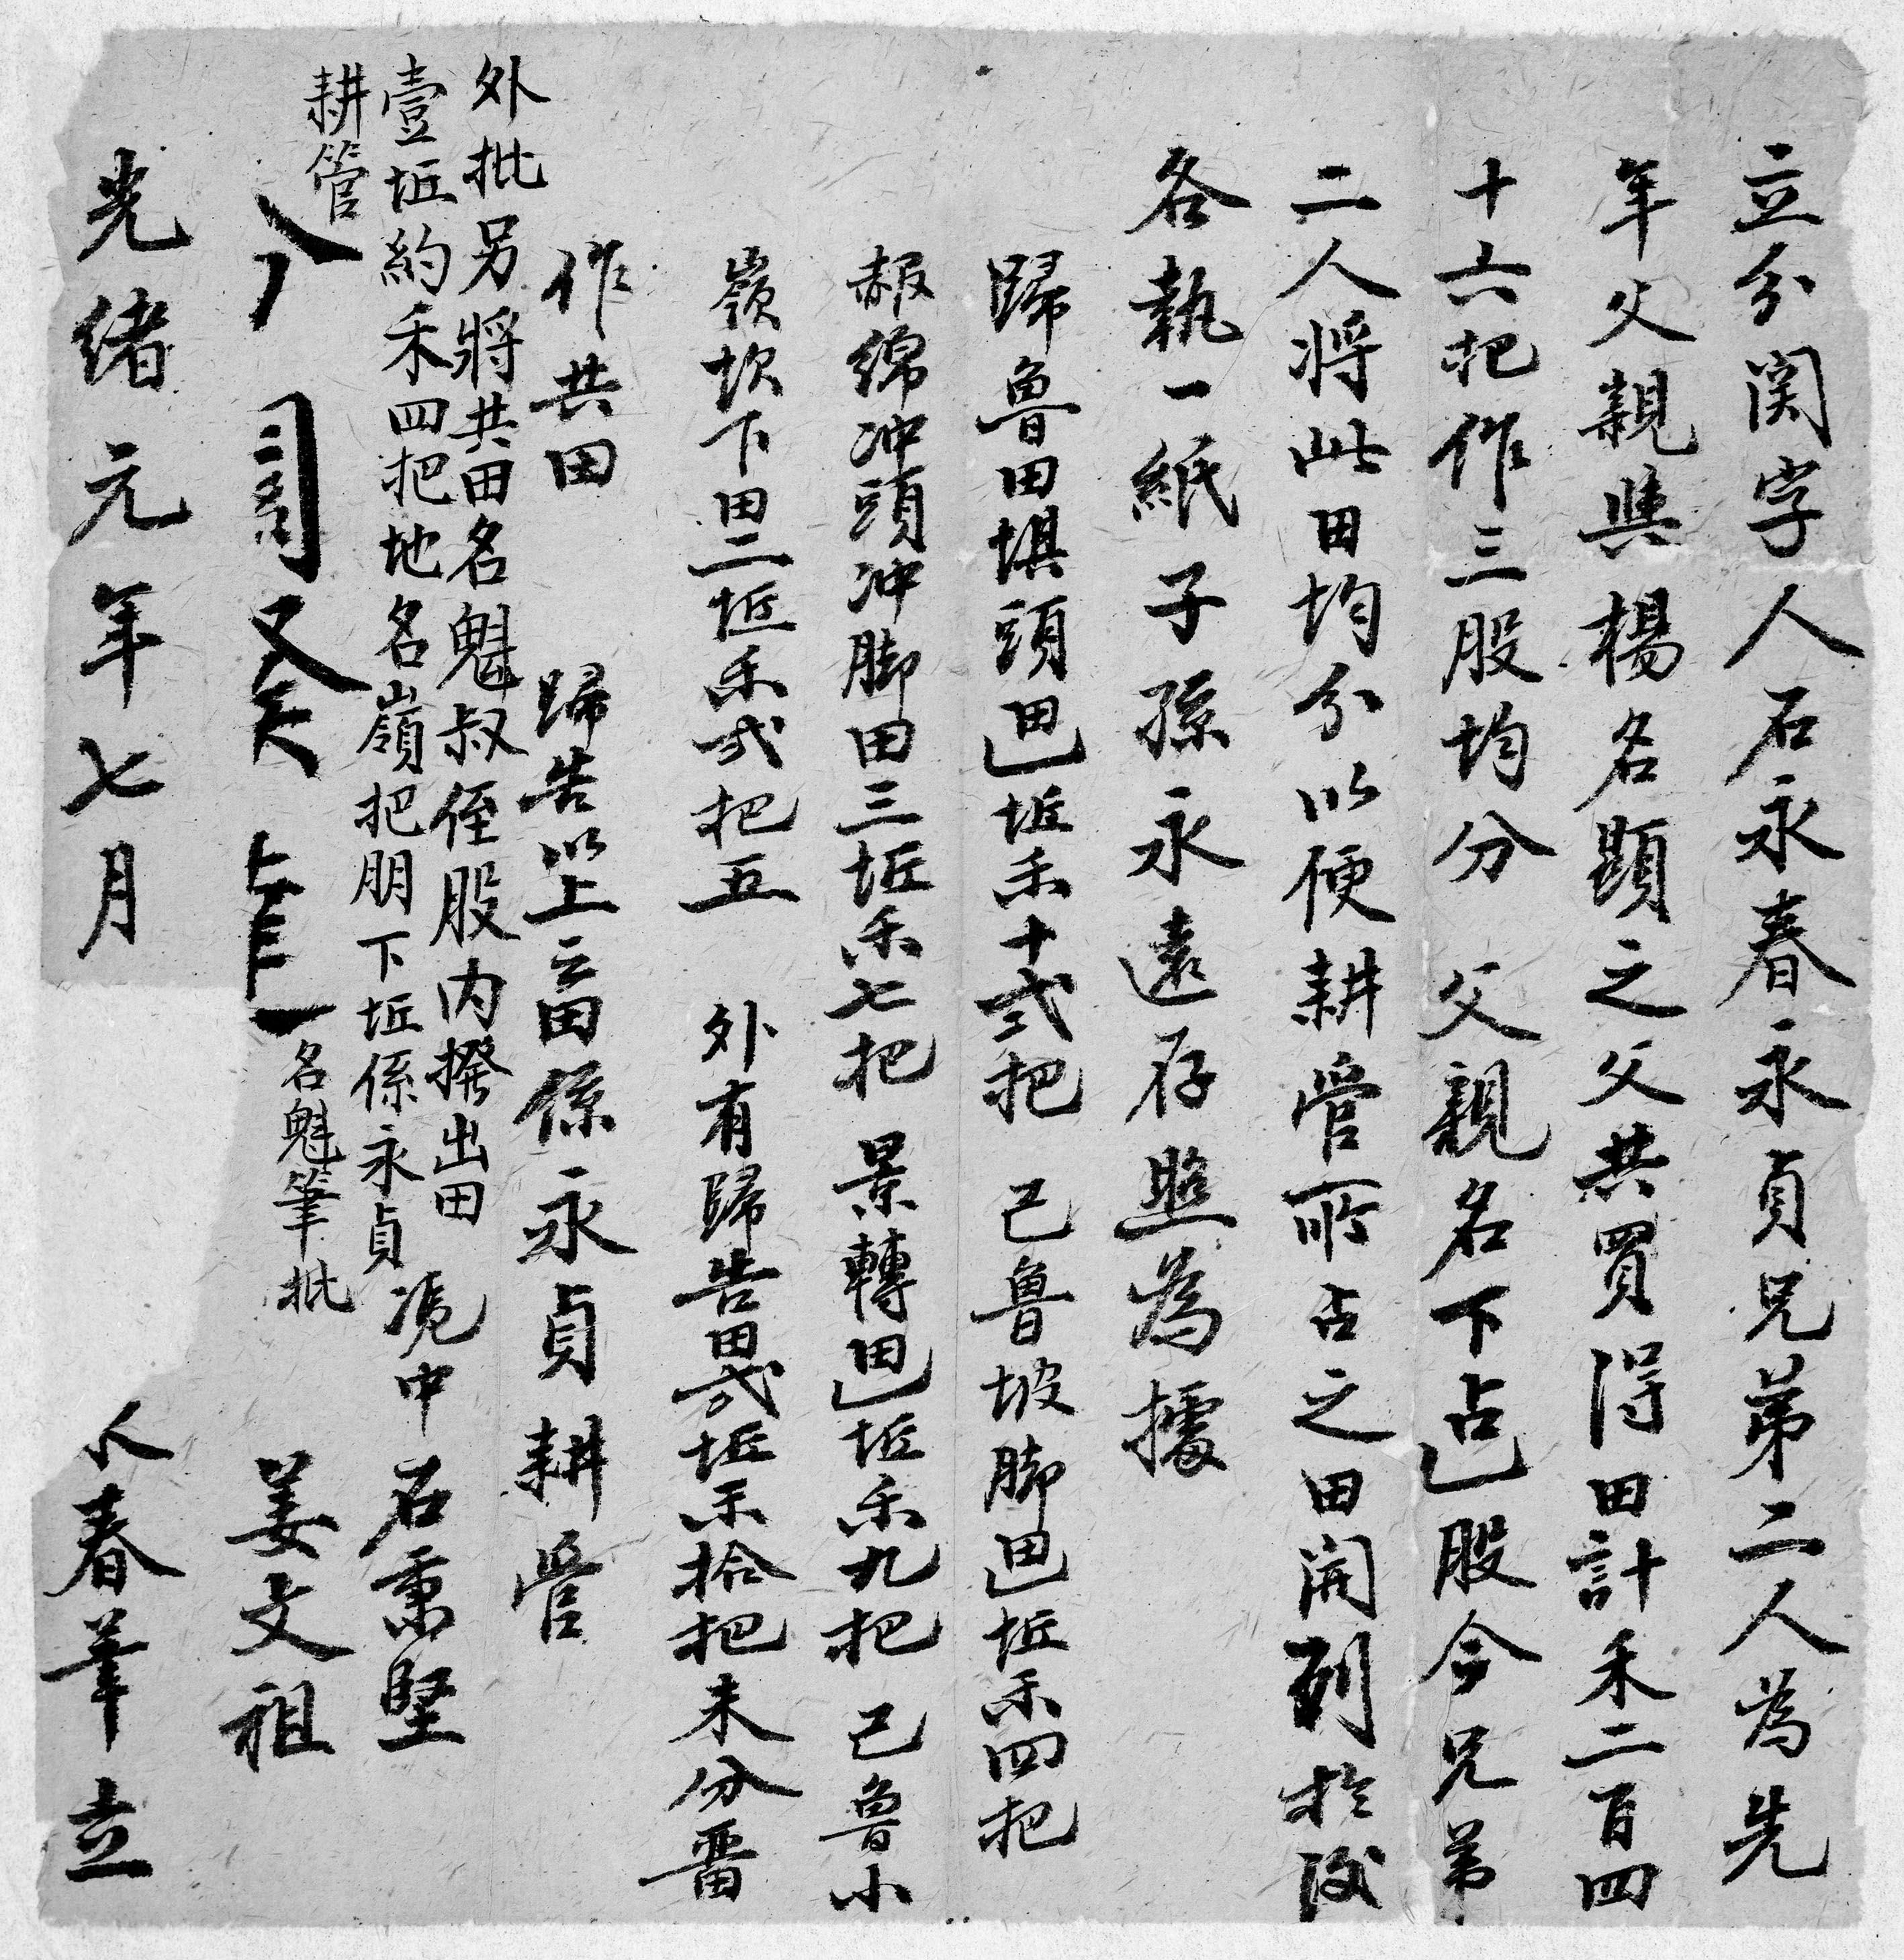 立分関字人石永春永貞兄弟二人為先
年父親與楊名顕之父共買得田計禾二百四
十六把作三股均分 父親名下占一股今兄弟
二人将此田均分以便耕管所占之田開列於後
各執一紙子孫永遠存照為據
歸魯田垻頭田一坵禾十弍把 己魯坡脚田一坵禾四把
赧綿冲頭冲脚田三坵禾七把 景轉田一坵禾九把 己魯小
嶺坎下田二坵禾弍把五 外有歸告田弍坵禾拾把未分畱
作共田 歸告以上之畱係永貞耕管
外批另將共田名魁叔侄股内撥出田
壹坵約禾四把地名嶺把朋下坵係永貞
耕管
名魁筆批
憑中 石秉堅
姜文祖
光緒元年七月 永春筆立